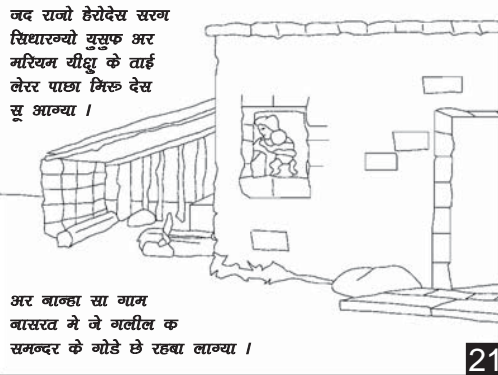 जद राजो हेरोदेस सरग
सिधारग्यो युसुफ अर
मरियम यीशु के ताई
लेरर पाछा मिस्र देस
सू आग्या ।
अर नान्हा सा गाम
नासरत मे जे गलील क
समन्दर के गोडे छे रहबा लाग्या ।
21